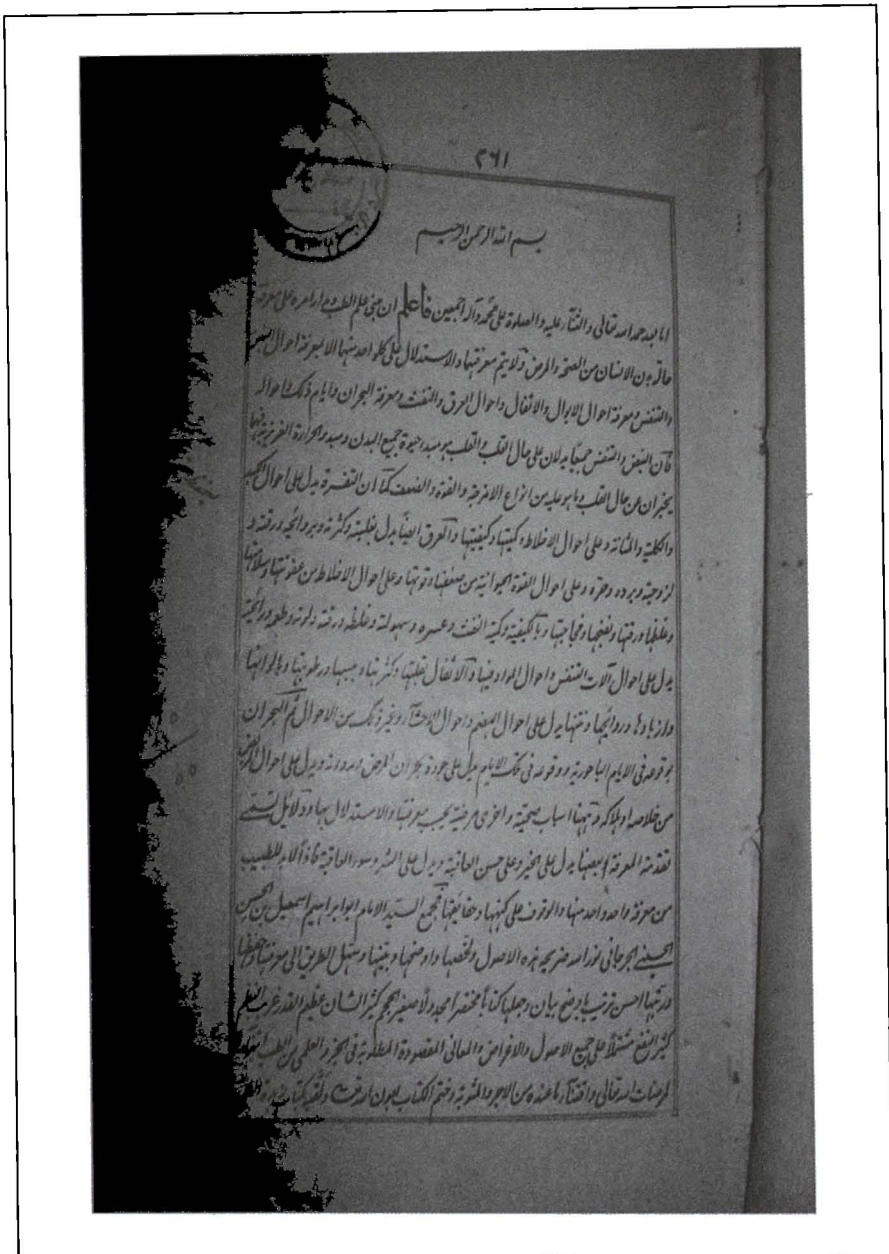 ٢٦١
بسم الله الرحمن الرحيم
اما بعد حمد الله تعالى والثناء عليه والصلوة على محمد وآله اجمعين فاعلم ان مبنى علم الطب على معرفة
حالتى بدن الانسان من الصحة والمرض ولا يتم معرفتها والاستدلال على كلواحد منها الا بمعرفة احوال النبض
والتنفس ومعرفة احوال الابوال والاثفال واحوال العرق والنفث ومعرفة البحران وايام ذلك واحواله
فان النبض والتنفس جميعا يدلان على حال القلب والقلب هو مبدء حيوة جميع البدن ومبدء الحرارة الغريزية فهما
يخبران عن حال القلب وما هو عليه من انواع الامزجة والقوة والضعف كما ان التفسرة يدل على احوال الكبد
والكلية والمثانة وعلى احوال الاخلاط وكميتها وكيفيتها والعرق ايضا يدل بقلته وكثرته وبروائحه ورقته و
لزوجته وبرده وحره وعلى احوال القوة الحيوانية من ضعفها وقوتها وعلى احوال الاخلاط من عفونتها وسلامتها
وغلظها ورقتها ونضجها وفجاجتها وبالكيفية وكمية النفث وعسره وسهولته وغلظه ورقته ولونه وطعمه ورائحته
يدل على احوال آلات التنفس واحوال المواد فيها والاثفال بقلتها وكثرتها ويبسها ورطوبتها وبالوانها
وازبادها وروائحها ونتنها يدل على احوال الهضم واحوال الاحشاء وغير ذلك من الاحوال ثم البحران
بوقوعه فى الايام الباحورية ووقوعه فى تلك الايام يدل على جودة بحران المرض وردائته ويدل على احوال المريض
من خلاصه او هلاكه وههنا اسباب صحية واخرى مرضية يجب معرفتها والاستدلال بها ودلائل تسمى
تقدمة المعرفة بعضها يدل على الخير وعلى حسن العاقبة ويدل على الشر وسوء العاقبة فاذا لابد للطبيب
من معرفة واحد واحد منها والوقوف على كنهها وحقائقها فجمع السيد الامام ابو ابراهيم اسمعيل بن الحسن
الحسينى الجرجانى نور الله ضريحه هذه الاصول ولخصها واوضحها وبينها وسهل الطريق الى معرفتها وحفظها
ورتبها احسن ترتيب باوضح بيان وجعلها كتابا مختصرا مجدولا صغير الحجم كثير الشان عظيم القدر غريب النظم
كثير النفع مشتملا على جميع الاصول والاغراض والمعانى المقصودة المطلوبة فى الجزء العلمى من الطب
لمرضات الله تعالى واقتناء ما عنده من الاجر والمثوبة وختم الكتاب بعون الله